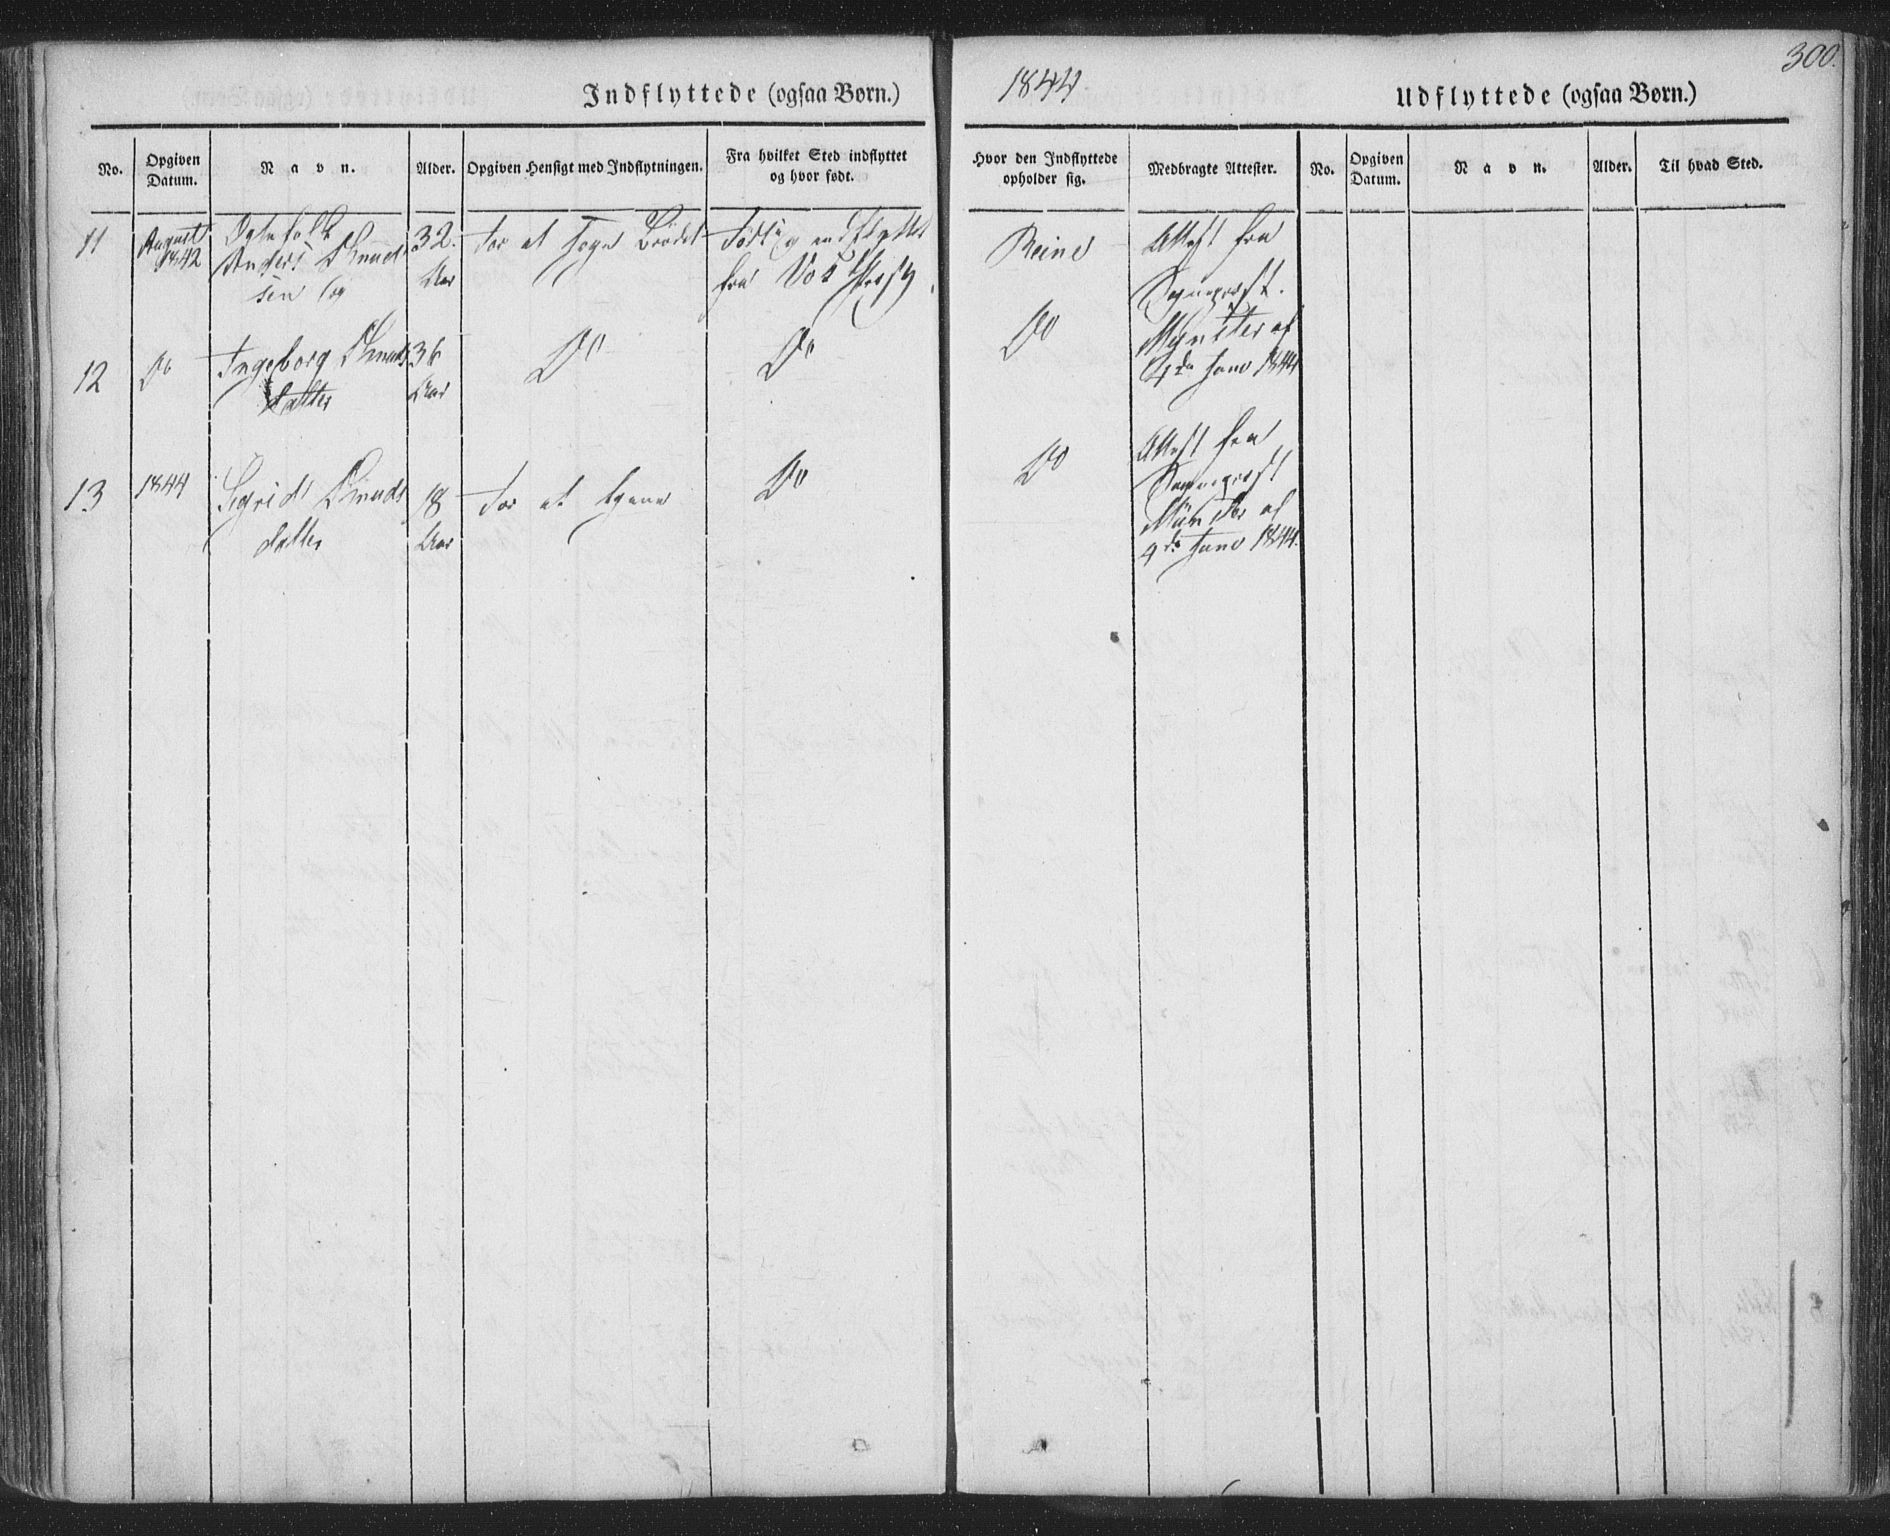 300.
Indflyttede (ogsaa Børn.)
1844
Udflyttede (ogsaa Børn.)
No.
Opgiven Datum.
Navn.
Alder.
Opgiven Hensigt med Indflytningen.
Fra hvilket Sted indflyttet og hvor født.
Hvor den Indflyttede opholder sig.
Medbragte Attester.
No.
Opgiven Datum.
Navn.
Alder.
Til hvad Sted.
11
August 1842
Ægtefolk
Anders Knud
sen og
32.
Aar
For at søge Brødet
Født og indflyttet
fra Vos Præstg.
Reine
Attest fra
Sognepræst.
Mynster af
4de Juni 1844
12
Do
Ingeborg Knuds
datter
36
Aar
Do
Do
Do
13
1844
Sigrid Knuds
datter
18
Aar
For at tjene
Do
Do
Attest fra
Sognepræst
Münster af
4de Juni 1844.